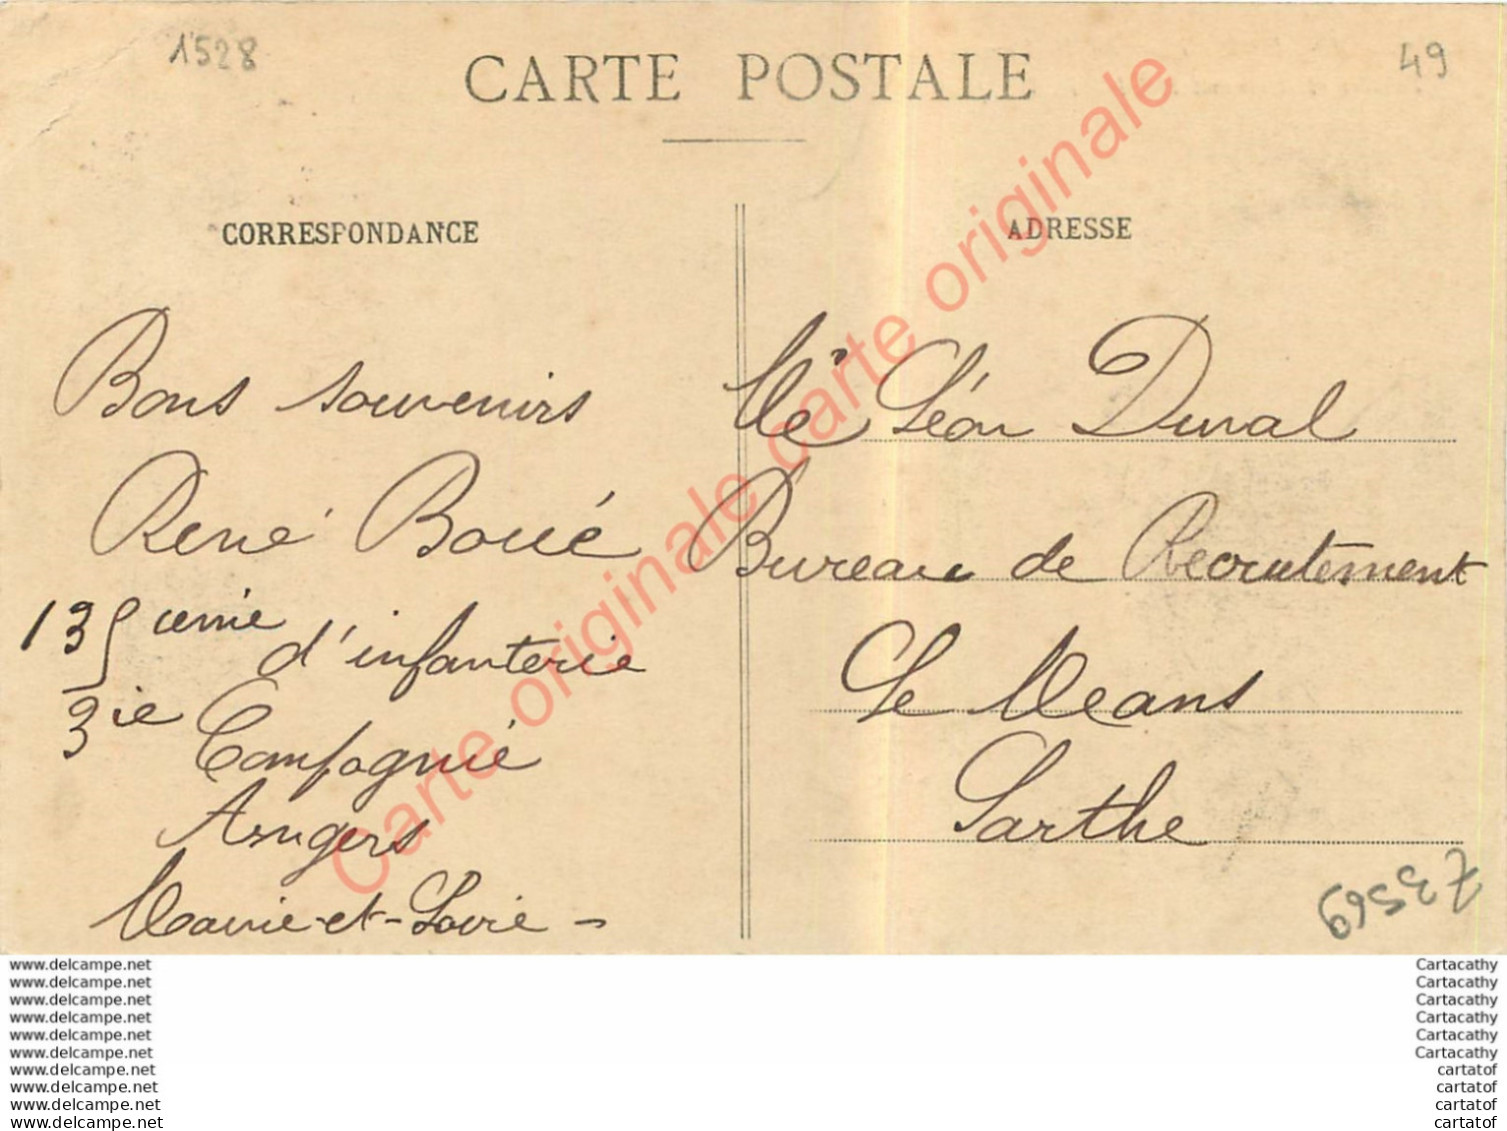 1528
CARTE POSTALE
49
CORRESPONDANCE
Bons souvenirs
René Boué
135ième d'infanterie
3ie Compagnie
Angers
Maine-et-Loire -
ADRESSE
Léon Duval
Bureau de Recrutement
Le Mans
Sarthe
73569
Carte originale carte originale
www.delcampe.net
www.delcampe.net
www.delcampe.net
www.delcampe.net
www.delcampe.net
www.delcampe.net
www.delcampe.net
www.delcampe.net
www.delcampe.net
www.delcampe.net
Cartacathy
Cartacathy
Cartacathy
Cartacathy
Cartacathy
Cartacathy
cartatof
cartatof
cartatof
cartatof